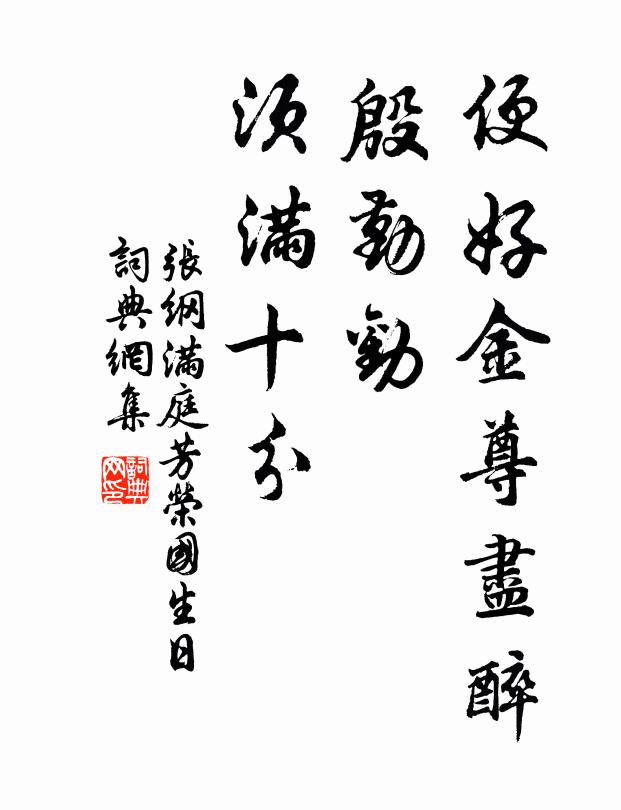 便好金尊盡醉
殷勤勸
須滿十分
張綱滿庭芳榮國生日
詞典網集
詞典
网印